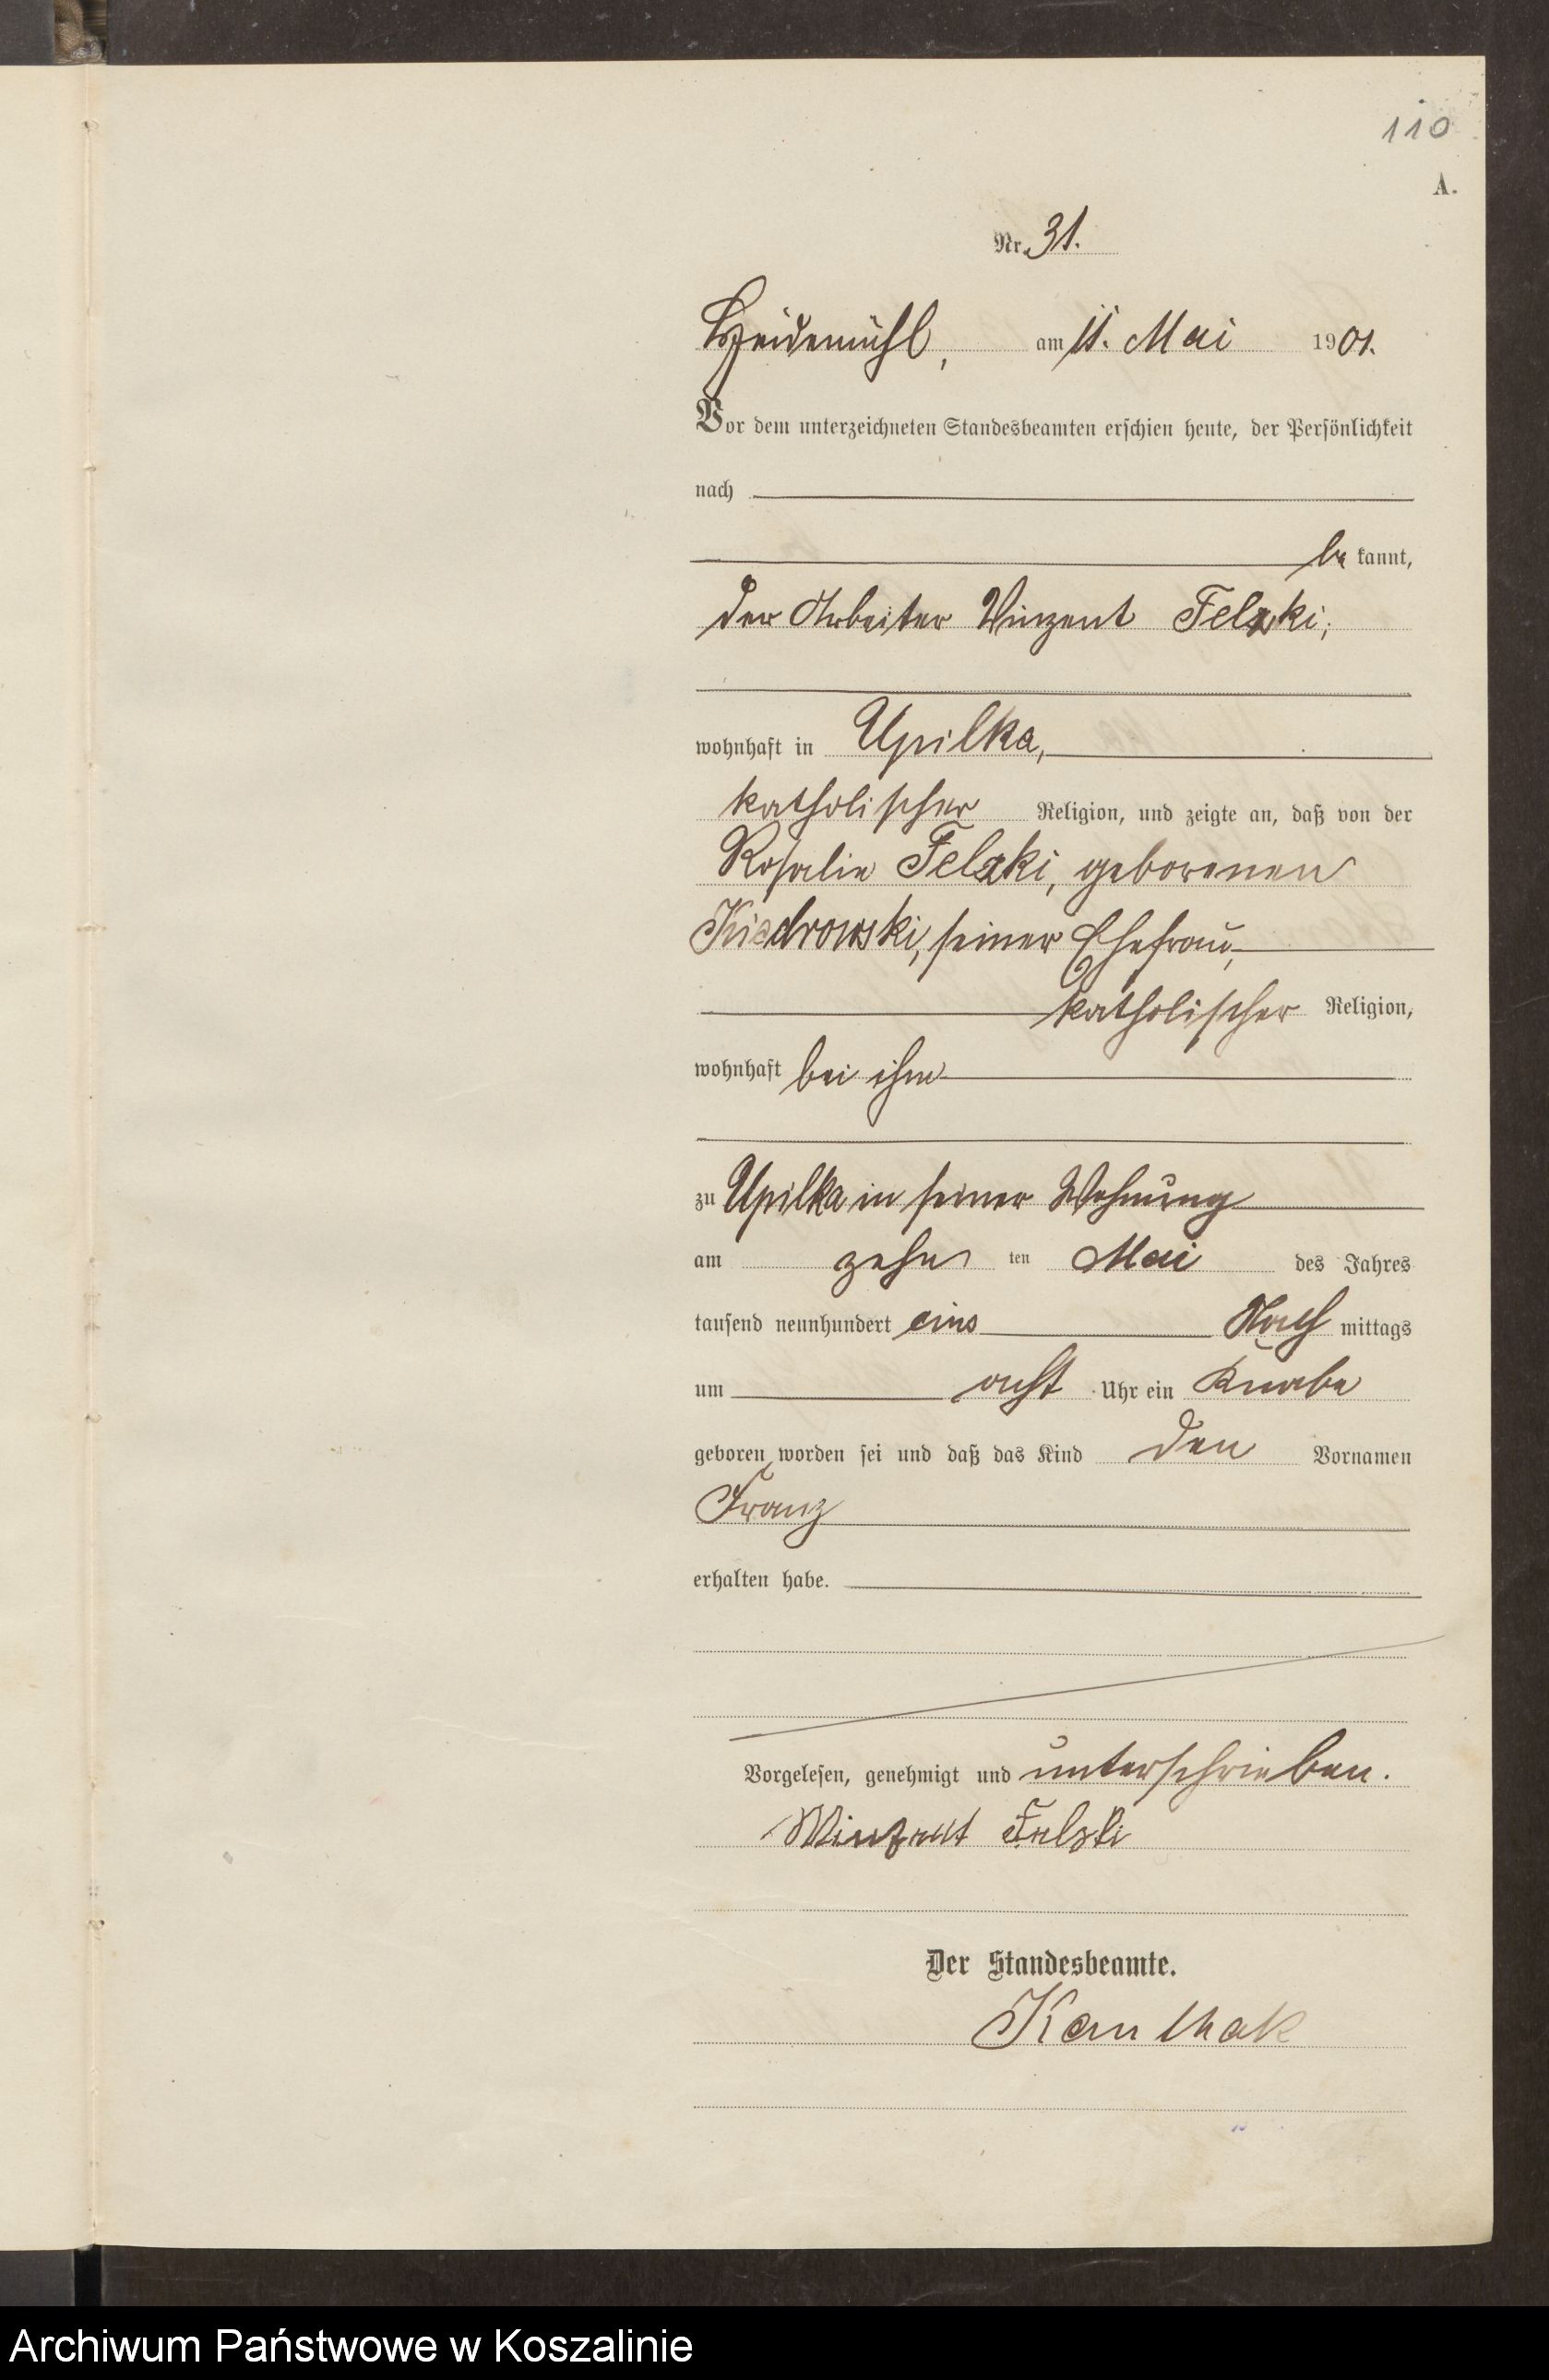 110
A.
Nr. 31.
Heidemühl, am 11. Mai 1901.
Vor dem unterzeichneten Standesbeamten erschien heute, der Persönlichkeit
nach
be kannt,
der Arbeiter Vinzent Felski,
wohnhaft in Upilka,
katholischer Religion, und zeigte an, daß von der
Rosalie Felski, geborenen
Kiedrowski, seiner Ehefrau,
katholischer Religion,
wohnhaft bei ihm
zu Upilka in seiner Wohnung
am zehn ten Mai des Jahres
tausend neunhundert eins Nach mittags
um acht Uhr ein Knabe
geboren worden sei und daß das Kind den Vornamen
Franz
erhalten habe.
Vorgelesen, genehmigt und unterschrieben.
Winzent Felski
Der Standesbeamte.
Kanthak
Archiwum Państwowe w Koszalinie